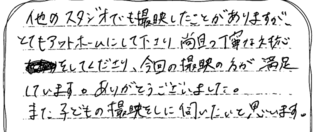 他のスタジオでも撮映したことがありますが、
とてもアットホームにして下さり尚且つ丁寧な対応
をしてくださり、今回の撮映の方が満足
しています。ありがとうございました。
また子どもの撮映をしに伺いたいと思います。